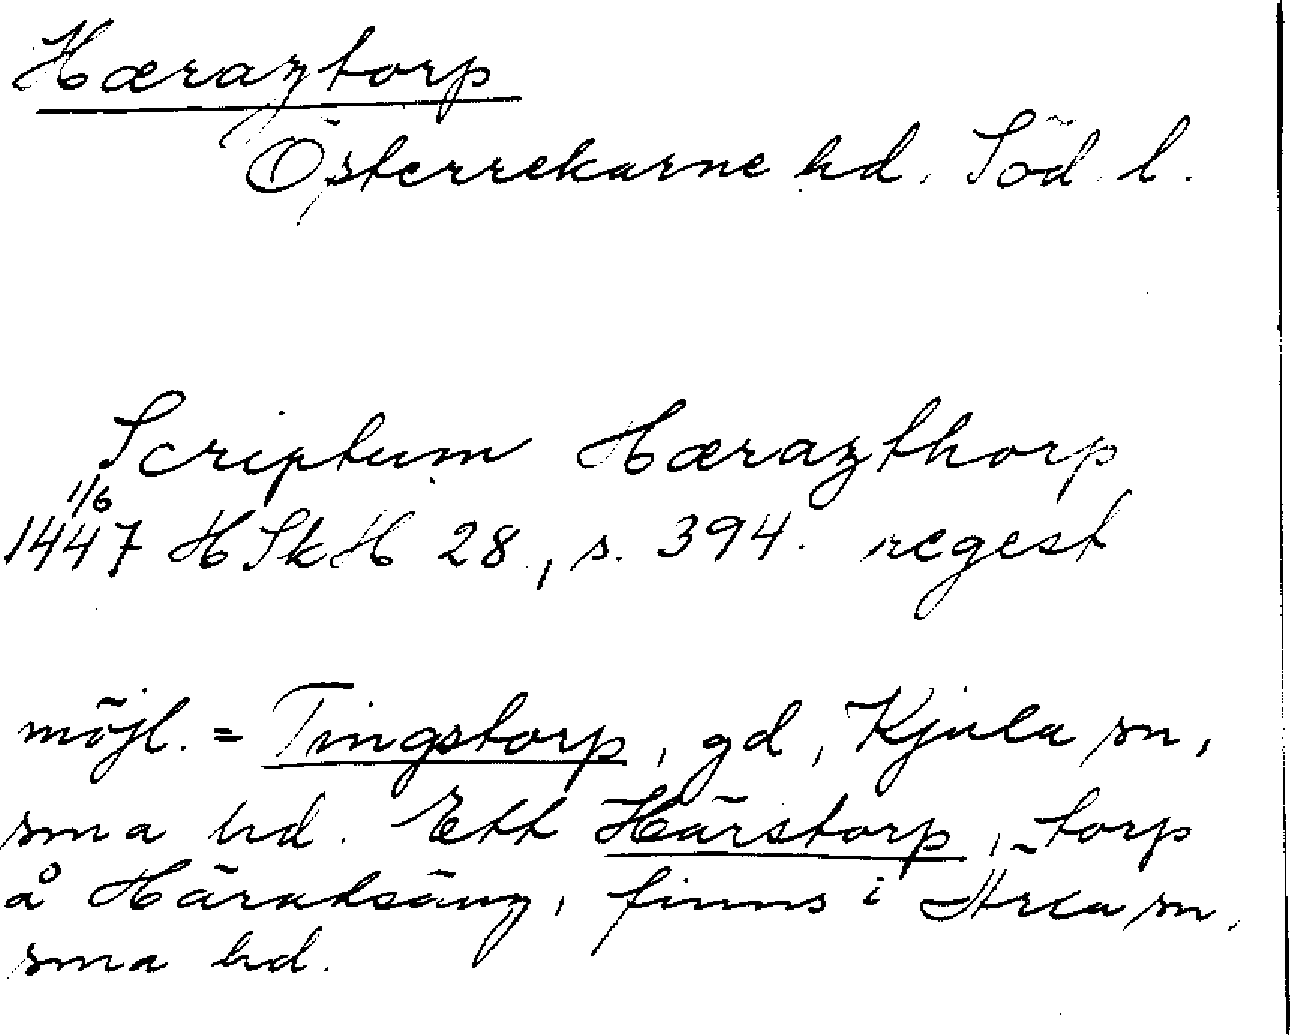 Hæraztorp
Österrekarne hd. Söd. l.
Scriptum Hærazthorp
1/6
1447 HSkH 28, s. 394. regest
möjl. = Tingstorp, gd, Kjula sn,
sma hd. Ett Härstorp, torp
å Häradsäng, finns i Årla sn,
sma hd.